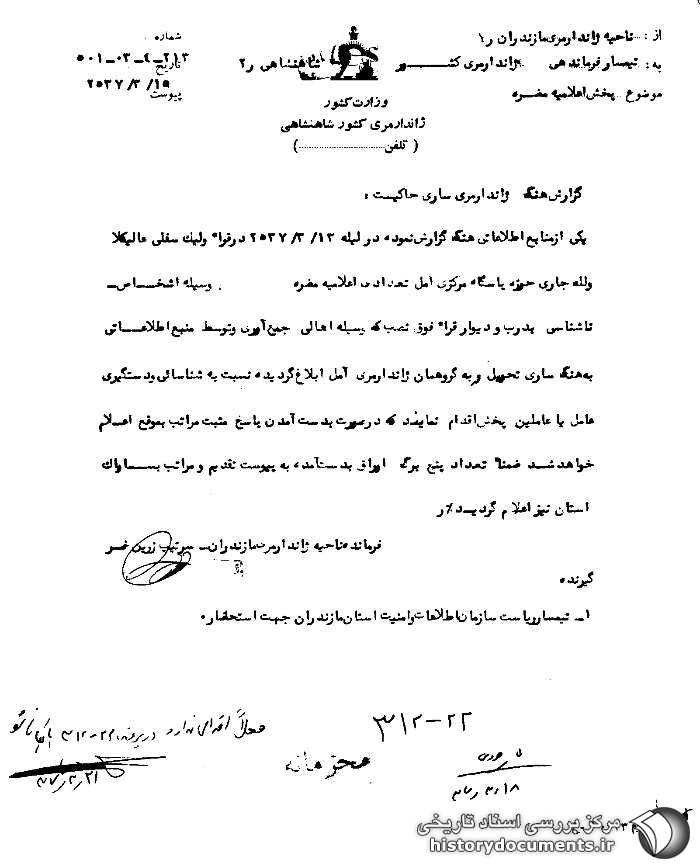 از : ناحیه ژاندارمری مازندران ر۱
به : تیمسار فرماندهی ژاندارمری کشور شاهنشاهی ر۲
موضوع پخش اعلامیه مضره
شماره ۲۱۳-۴-۰۳-۵۰۱
تاریخ ۲۵۳۷/۳/۱۵
پیوست
وزارت کشور
ژاندارمری کشور شاهنشاهی
( تلفن )
گزارش هنگ ژاندارمری ساری حاکیست :
یکی از منابع اطلاعاتی هنگ گزارش نموده در لیله ۲۵۳۷/۳/۱۳ در قراء ولیک سفلی عالیکلا
ولله جاری حوزه پاسگاه مرکزی امل تعدادی اعلامیه مضره وسیله اشخاص
ناشناسی بدرب و دیوار قراء فوق نصب که وسیله اهالی جمع آوری وتوسط منبع اطلاعاتی
به هنگ ساری تحویل و به گروهان ژاندارمری آمل ابلاغ گردیده نسبت به شناسائی ودستگیری
عامل یا عاملین پخش اقدام نمایند که در صورت بدست آمدن پاسخ مثبت مراتب بموقع اعلام
خواهد شد ضمناً تعداد پنج برگ اوراق بدست آمده به پیوست تقدیم و مراتب بساواک
استان نیز اعلام گردید٪ر
فرمانده ناحیه ژاندارمری مازندران – سرتیپ زرین
گیرنده
۱- تیمسار ریاست سازمان اطلاعات و امنیت استان مازندران جهت استحضار۰
۳۱۲-۲۲
فعلاً اقدامی ندارد در پرونده ۲۲-۳۱۲ بایگانی شود
محرمانه
مرکز بررسی اسناد تاریخی
historydocuments.ir